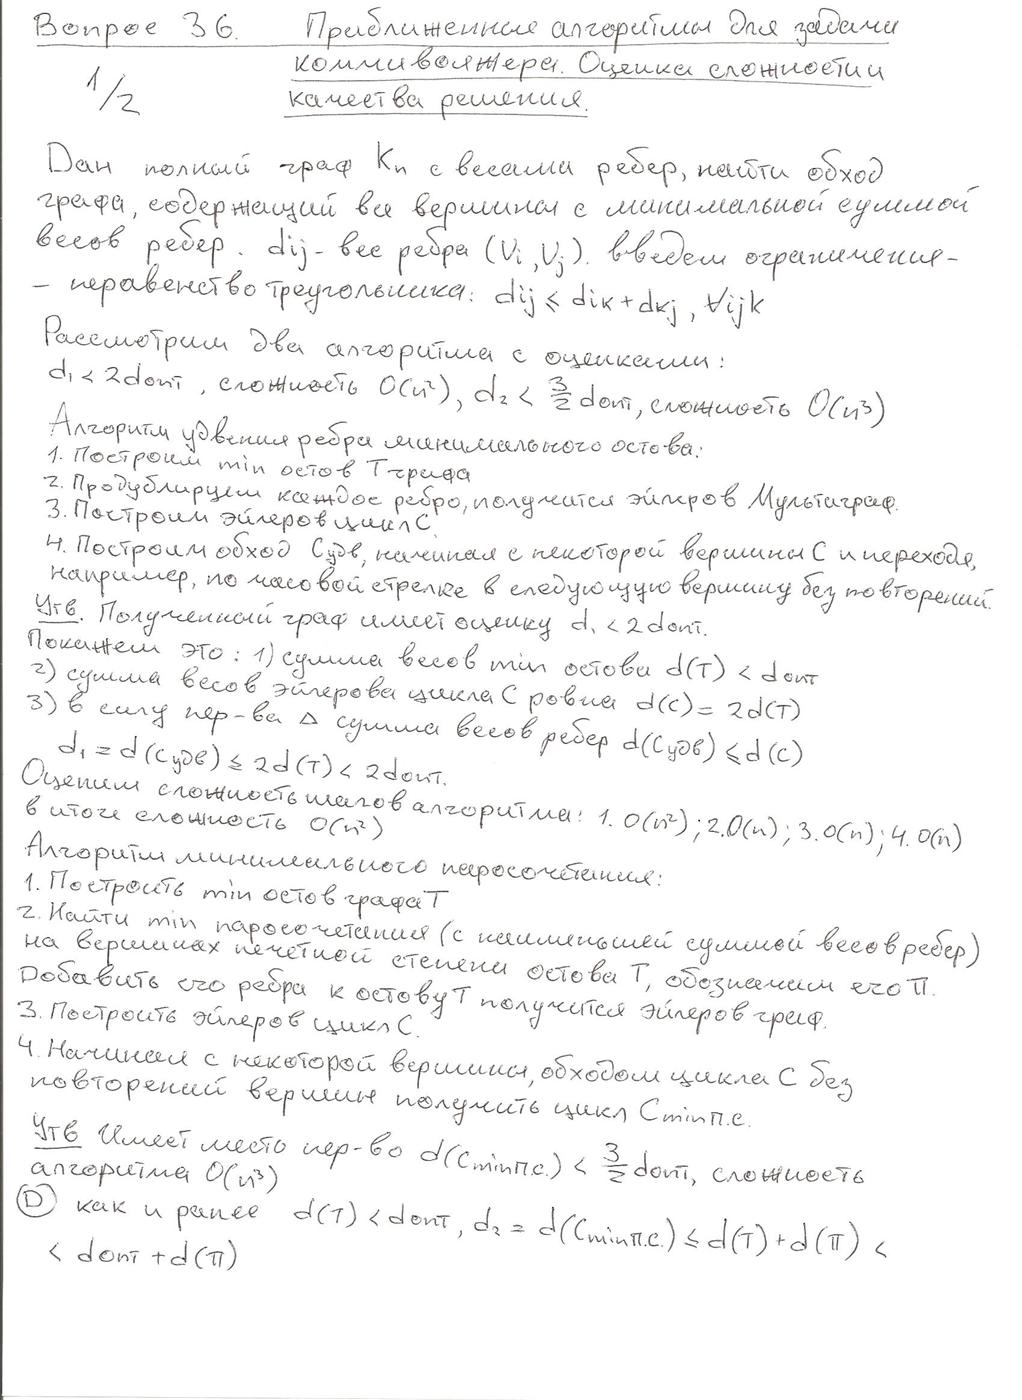 Вопрос 36. Приближенные алгоритмы для задачи
коммивояжера. Оценка сложности и
1/2
качества решения.
Дан полный граф Kn с весами ребер, найти обход
графа, содержащий все вершины с минимальной суммой
весов ребер. dij - вес ребра (Vi, Vj). введем ограничения-
- неравенство треугольника: dij ≤ dik + dkj, ∀ijk
Рассмотрим два алгоритма с оценками:
d₁ < 2dопт, сложность O(n²), d₂ < 3/2 dопт, сложность O(n³)
Алгоритм удвения ребра минимального остова:
1. Построим min остов T графа
2. Продублируем каждое ребро, получится эйлеров Мультиграф.
3. Построим эйлеров цикл C
4. Построим обход Cудв, начиная с некоторой вершины C и переходя,
например, по часовой стрелке в следующую вершину без повторений.
Утв. Полученный граф имеет оценку d₁ < 2dопт.
Покажем это: 1) сумма весов min остова d(T) < dопт
2) сумма весов эйлерова цикла C ровна d(C) = 2d(T)
3) в силу нер-ва Δ сумма весов ребер d(Cудв) ≤ d(C)
d₁ = d(Cудв) ≤ 2d(T) < 2dопт.
Оценим сложность шагов алгоритма: 1. O(n²); 2. O(n); 3. O(n); 4. O(n)
в итоге сложность O(n²)
Алгоритм минимального паросочетания:
1. Построить min остов графа T
2. Найти min паросочетания (с наименьшей суммой весов ребер)
на вершинах нечетной степени остова T, обозначим его П.
Добавить его ребра к остову T получится эйлеров граф.
3. Построить эйлеров цикл C.
4. Начиная с некоторой вершины, обходом цикла C без
повторений вершин получить цикл Cminп.с.
Утв Имеет место нер-во d(Cminп.с.) < 3/2 dопт, сложность
алгоритма O(n³)
D как и ранее d(T) < dопт, d₂ = d(Cminп.с.) ≤ d(T) + d(П) <
< dопт + d(П)